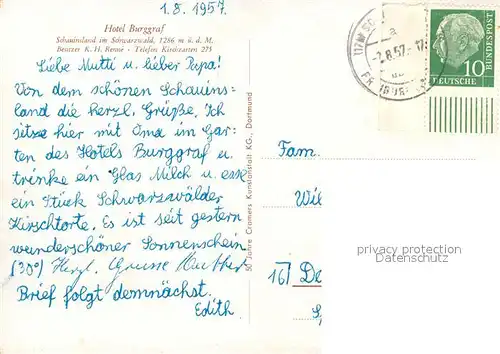 1.8.1957.
Hotel Burggraf
Schauinsland im Schwarzwald, 1286 m ü. d. M.
Besitzer K. H. Renné - Telefon Kirchzarten 275
Liebe Mutti u. lieber Papa!
Von dem schönen Schauins-
land die herzl. Grüße. Ich
sitze hier mit Oma im Gar-
ten des Hotels Burggraf u.
trinke ein Glas Milch u. esse
ein Stück Schwarzwälder
Kirschtorte. Es ist seit gestern
wunderschöner Sonnenschein
(30°) Herzl. Grüsse Mutter
Brief folgt demnächst.
Edith.
50 Jahre Cramers Kunstanstalt KG., Dortmund
-2.8.57.-17
DEUTSCHE BUNDESPOST
10
Fam.
Wil
16) De
privacy protection